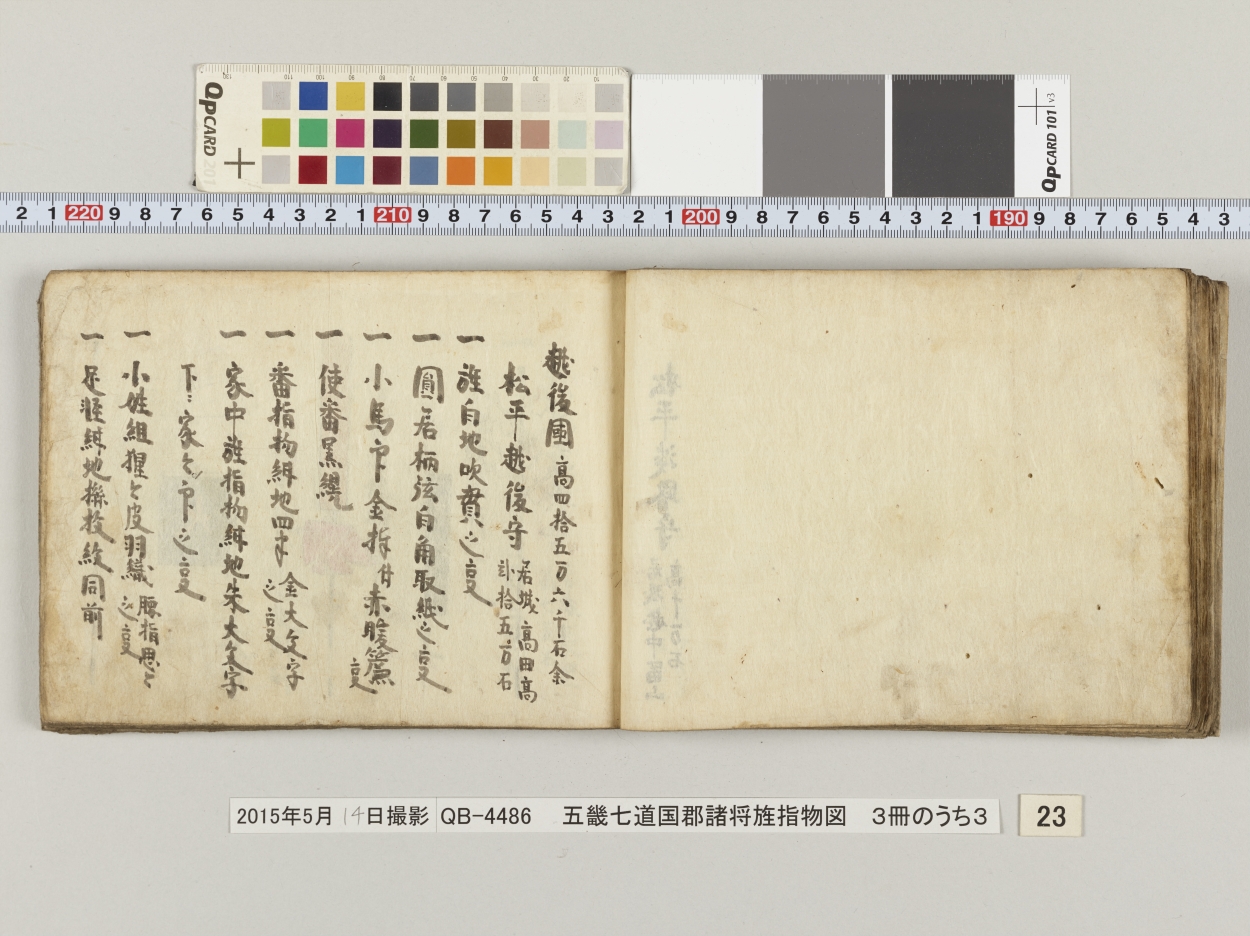 QPCARD 201
QPCARD 101 v3
2 1 220 9 8 7 6 5 4 3 2 1 210 9 8 7 6 5 4 3 2 1 200 9 8 7 6 5 4 3 2 1 190 9 8 7 6 5 4 3
越後國 高四拾五万六千石余
松平越後守 居城高田高
弐拾五万石
一 旌白地吹貫之事
一 圓居柄弦白角取紙之事
一 小馬印金折 赤腹簾
事
一 使番黒縨
一 番指物緋地四半 金大文字
之事
一 家中旌指物緋地朱大文字
下ニ家々印之事
一 小姓組猩々皮羽織 腰指思々
之事
一 足軽緋地 紋同前
2015年5月14日撮影 QB-4486 五畿七道国郡諸将旌指物図 3冊のうち3
23